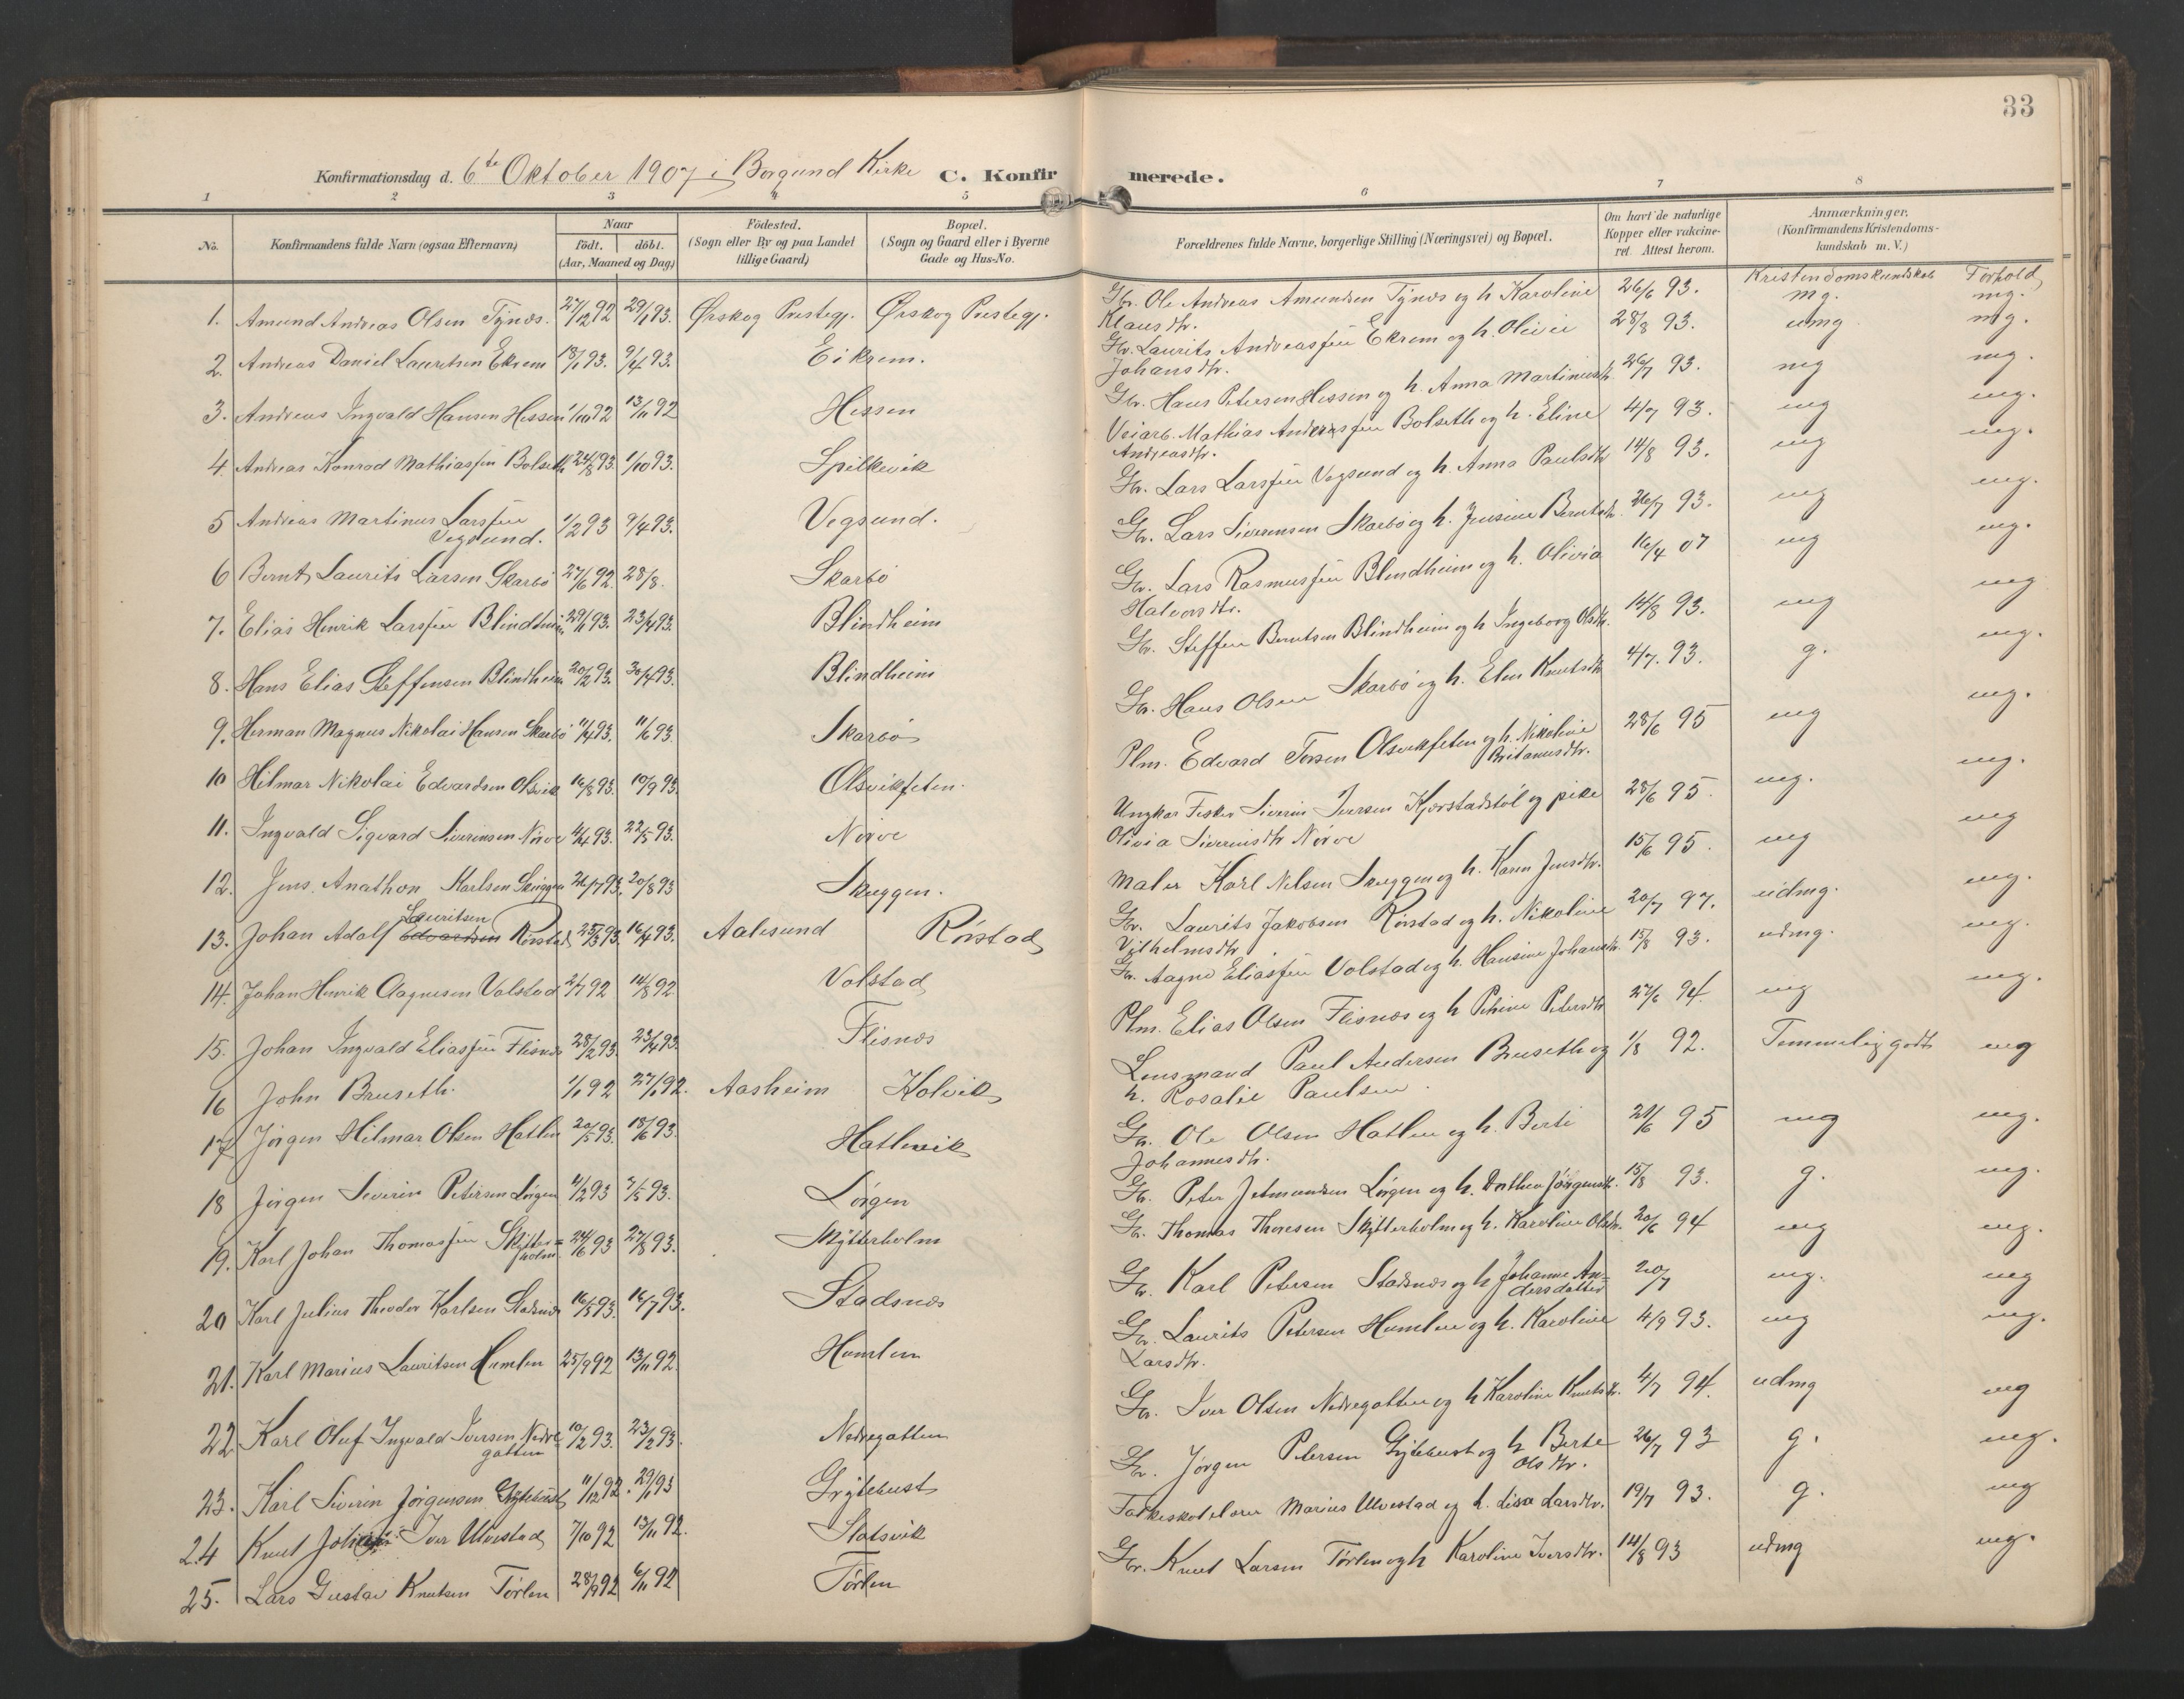 33
Konfirmationsdag d. 6te Oktober 1907 i Borgund Kirke C. Konfirmerede.
1 2 3 4 5 6 7 8
No. Konfirmandens fulde Navn (ogsaa Efternavn) Naar født. døbt. (Aar, Maaned og Dag) Födested. (Sogn eller By og paa Landet tillige Gaard) Bopæl. (Sogn og Gaard eller i Byerne Gade og Hus-No. Forældrenes fulde Navne, borgerlige Stilling (Næringsvei) og Bopæl. Om havt de naturlige Kopper eller vakcineret. Attest herom. Anmærkninger. (Konfirmandens Kristendomskundskab m. V.)
Kristendomskundskab Forhold
1. Amund Andreas Olsen Tynæs. 27/12 92 29/1 93. Ørskog Prestegj. Ørskog Prestegj. Gbr. Ole Andreas Amundsen Tynæs og h Karoline 26/6 93. mg. mg.
Klausdtr.
2. Andreas Daniel Lauritsen Ekrem 18/1 93. 9/4 93. Eikrem. Gbr. Laurits Andreasjen Ekrem og h. Olivie 28/8 93. udmg mg.
Johansdtr.
3. Andreas Ingvald Hansen Hessen 1/10 92 13/11 92 Hessen Gbr. Hans Petersen Hessen og h. Anna Martinusdt. 26/7 93. mg mg.
4. Andreas Konrad Mathiasjen Bolseth 24/8 93. 1/10 93. Spilkevik Veiarb. Mathias Andreasjen Bolseth og h. Eline 4/7 93. mg mg.
Andreasdtr.
5 Andreas Martinus Larsjen 1/2 93 9/4 93. Vegsund. Gbr. Lars Larsjen Vegsund og h. Anna Paulsdtr 14/8 93. mg mg.
Vegsund.
6 Bernt Laurits Larsen Skarbö 27/6 92. 28/8. Skarbö Gbr. Lars Sivertsen Skarbö og h. Jensine Berntsdt. 26/7 93. mg mg.
7. Elias Henrik Larsjen Blindheim 29/1 93. 23/4 93. Blindheim Gbr. Lars Rasmusjen Blindheim og h. Olivia 16/4 07 mg mg.
Halvorsdtr.
8. Hans Elias Steffensen Blindheim 20/2 93. 30/4 93. Blindheim Gbr. Steffen Berntsen Blindheim og h Ingeborg Olsdtr. 14/8 93. mg mg
9. Herman Magnus Nikolai Hansen Skarbö 11/4 93. 11/6 93. Skarbö Gbr. Hans Olsen Skarbö og h. Elen Knutsdtr 4/7. 93. g. mg.
10 Hilmar Nikolai Edvardsen Olsvik 16/8 93. 10/9 93. Olsvikfeten. Plm. Edvard Torsen Olsvikfeten og h. Nikoline 28/6 95 mg mg.
Britanusdtr.
11. Ingvald Sigvard Siverinsen Nörve 4/4 93. 22/5 93. Nörve Ungkar Fisker Siverin Iversen Kjerstadstöl og pike 28/6 95. mg. mg.
Olivia Siverinsdtr Nörve
12. Jens Anathon Karlsen Skuggen 26/7 93. 20/8 93 Skuggen. Maler Karl Nilsen Skuggen og h. Karen Jensdtr. 15/6 95. mg mg
13. Johan Adolf Edvardsen Lauritsen Rörstad 25/3 93. 16/4 93. Aalesund Rörstad Gbr. Laurits Jakobsen Rörstad og h. Nikoline 20/7 97. udmg. mg.
Vilhelmsdtr
14. Johan Henrik Aagnesen Valstad 2/7 92 14/8 92 Volstad Gbr. Aagne Eliasjen Volstad og h. Hansine Johansdtr. 15/8 93. udmg. mg.
15. Johan Ingvald Eliasjen Flisnæs 28/2 93. 23/4 93. Flisnæs Plm. Elias Olsen Flisnæs og h Petrine Petersdtr 27/6 94. mg mg.
16 John Bruseth. 1/1 92 27/1 92. Aasheim Kolvik Lensmand Paul Andersen Bruseth og 1/8 92. Temmelig godt mg
h. Rosalie Paulsen
17 Jörgen Hilmar Olsen Hatlen 20/5 93. 18/6 93. Hatlevik Gbr. Ole Olsen Hatlen og h. Berte 21/6 95 mg mg.
Johannesdtr.
18 Jörgen Severin Petersen Lörgen 4/2 93 7/5 93. Lörgen Gbr. Peter Jetmundsen Lörgen og h. Dorthea Jörgensdt. 15/8 93. g. mg.
19. Karl Johan Thomasjen Skytterholm 24/6 93 27/8 93. Skytterholm Gbr. Thomas Thoresen Skytterholm og h. Karoline Olsdtr. 20/6 94 mg mg.
20 Karl Julius Theodor Karlsen Stadsnæs 16/5 93. 16/7 93. Stadsnæs Gbr. Karl Petersen Stadsnæs og h Johanne An= 20/7 mg. mg
dersdatter
21. Karl Marius Lauritsen Humlen 25/9 92 13/11 92. Humlen Gbr. Laurits Petersen Humlen og h. Karoline 4/9 93. mg mg.
Larsdtr.
22 Karl Oluf Ingvald Iversen Nedre 10/2 93. 23/2 93. Nedregotten Gbr. Iver Olsen Nedregotten og h Karoline Knutsdtr. 4/7 94. udmg mg
gotten
23. Karl Siverin Jörgensen Grytebust 11/12 92. 29/1 93 Grytebust Gbr. Jörgen Petersen Grytebust og h Berte 26/7 93 g. mg.
Olsdtr.
24 Knut Iver Ulvestad 7/10 92 13/11 92. Slatsvik Folkeskolelærer Marius Ulvestad og h. Lisa Larsdtr. 19/7 93. g. mg
25. Lars Gustav Knutsen Törlen 28/9 92 6/11 92 Törlen Gbr. Knut Larsen Törlen og h Karoline Iversdtr. 14/8 93 udmg mg.